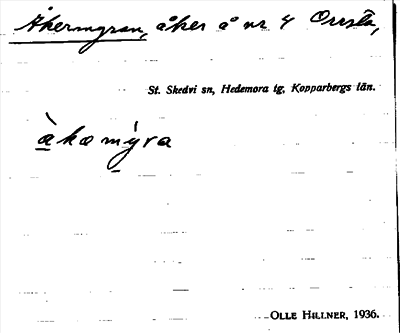 Åkermyran, åker å nr 4 Orrsta,
St. Skedvi sn, Hedemora tg, Kopparbergs län.
àkamýra
OLLE HILLNER, 1936.